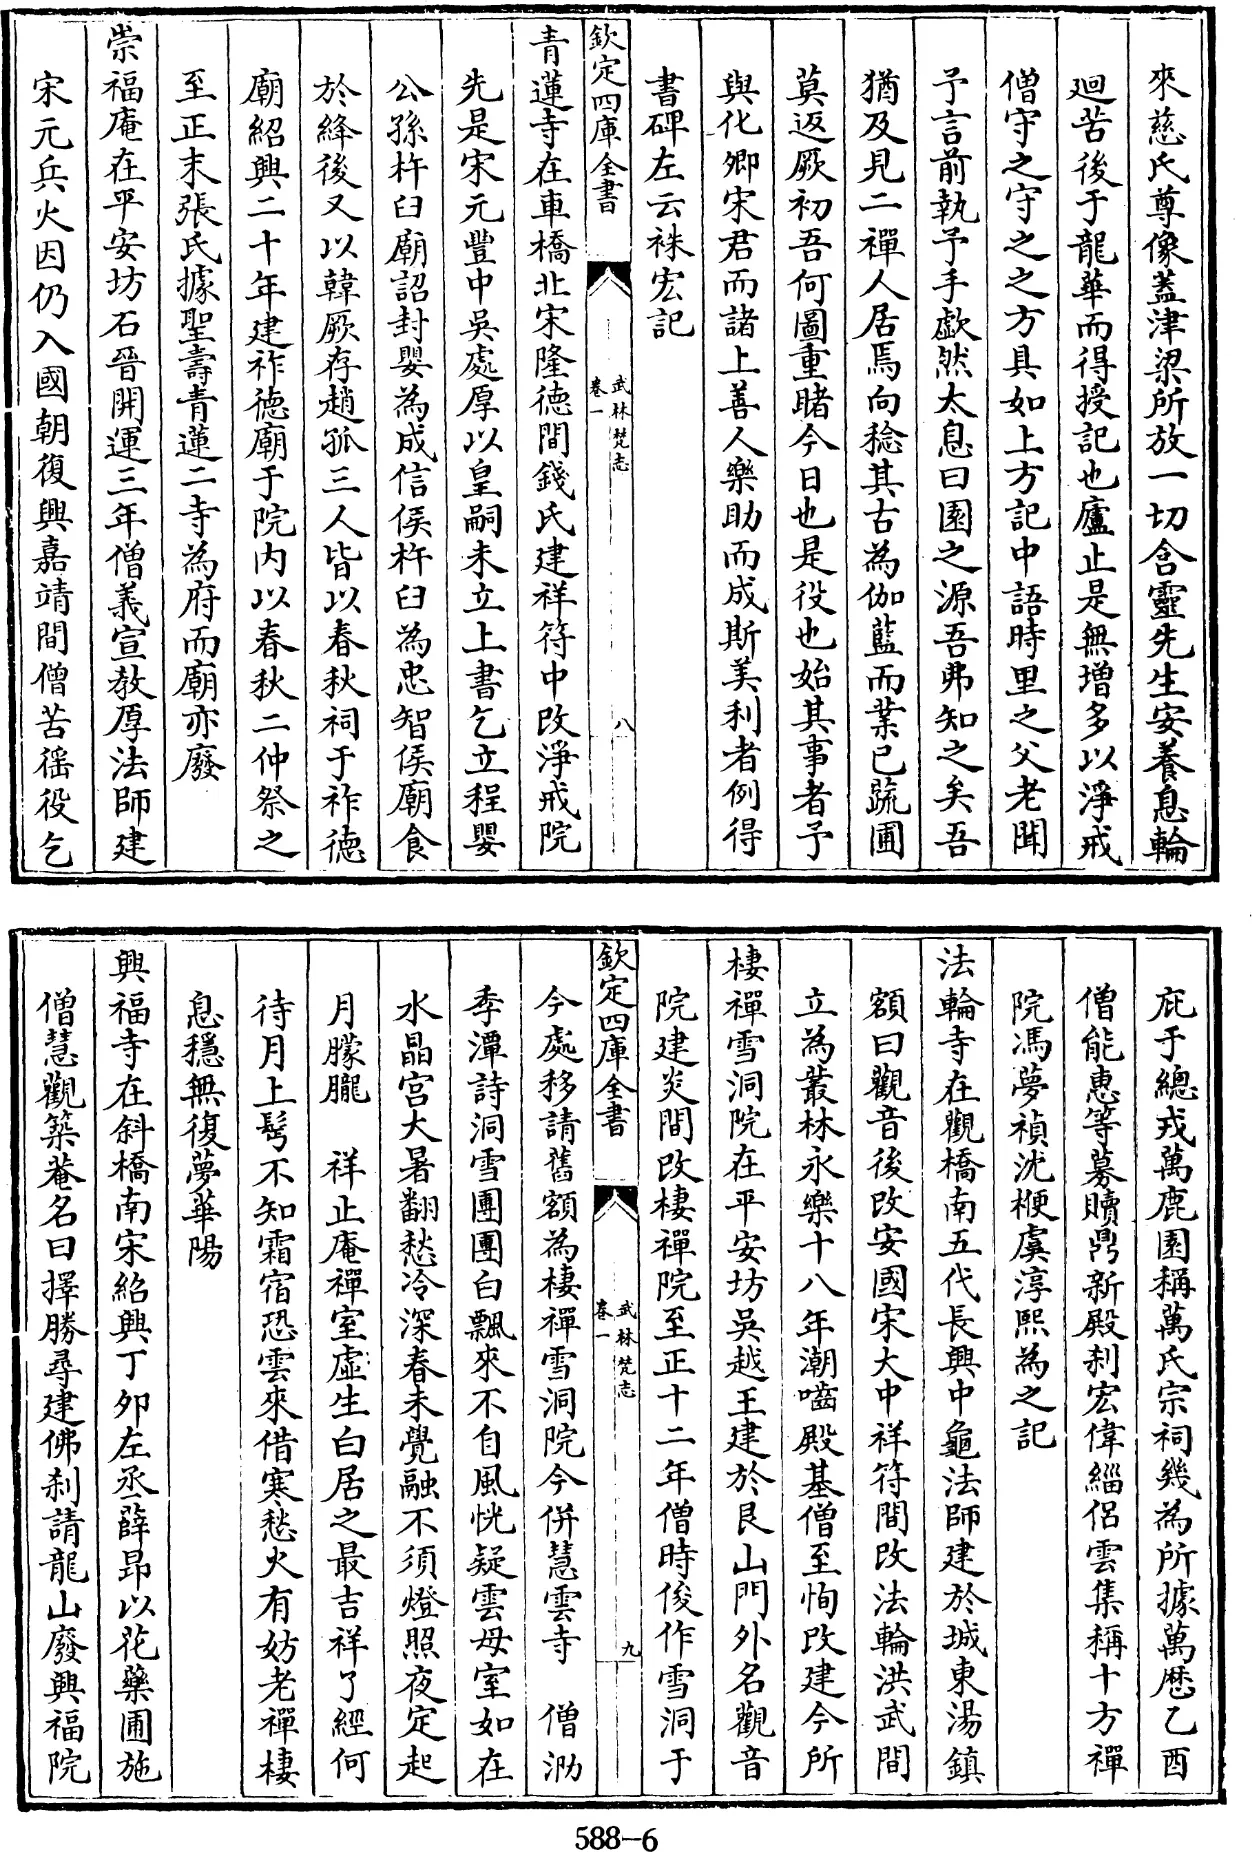 來慈氏尊像蓋津梁所放一切含靈先生安養息輪
廻苦後于龍華而得授記也廬止是無增多以淨戒
僧守之守之之方具如上方記中語時里之父老聞
予言前執予手歔然太息曰園之源吾弗知之矣吾
猶及見二禪人居焉向稔其古為伽藍而業已蔬圃
莫返厥初吾何圖重睹今日也是役也始其事者予
與化卿宋君而諸上善人樂助而成斯美利者例得
書碑左云袾宏記
欽定四庫全書
武林梵志
卷一
八
青蓮寺在車橋北宋隆德間錢氏建祥符中改淨戒院
先是宋元豐中吳處厚以皇嗣未立上書乞立程嬰
公孫杵臼廟詔封嬰為成信侯杵臼為忠智侯廟食
於絳後又以韓厥存趙孤三人皆以春秋祠于祚德
廟紹興二十年建祚德廟于院內以春秋二仲祭之
至正末張氏據聖壽青蓮二寺為府而廟亦廢
崇福庵在平安坊石晉開運三年僧義宣教厚法師建
宋元兵火因仍入國朝復興嘉靖間僧苦徭役乞
庇于總戎萬鹿園稱萬氏宗祠幾為所據萬歷乙酉
僧能惠等募贖鼎新殿刹宏偉緇侶雲集稱十方禪
院馮夢禎沈楩虞淳熙為之記
法輪寺在觀橋南五代長興中龜法師建於城東湯鎮
額曰觀音後改安國宋大中祥符間改法輪洪武間
立為叢林永樂十八年潮嚙殿基僧至恂改建今所
棲禪雪洞院在平安坊吳越王建於艮山門外名觀音
院建炎間改棲禪院至正十二年僧時俊作雪洞于
欽定四庫全書
武林梵志
卷一
九
今處移請舊額為棲禪雪洞院今併慧雲寺 僧泐
季潭詩洞雪團團白飄來不自風恍疑雲母室如在
水晶宮大暑翻愁冷深春未覺融不須燈照夜定起
月朦朧 祥止庵禪室虛生白居之最吉祥了經何
待月上髩不知霜宿恐雲來借寒愁火有妨老禪棲
息穩無復夢華陽
興福寺在斜橋南宋紹興丁卯左丞薛昂以花藥圃施
僧慧觀築菴名曰擇勝尋建佛刹請龍山廢興福院
588-6